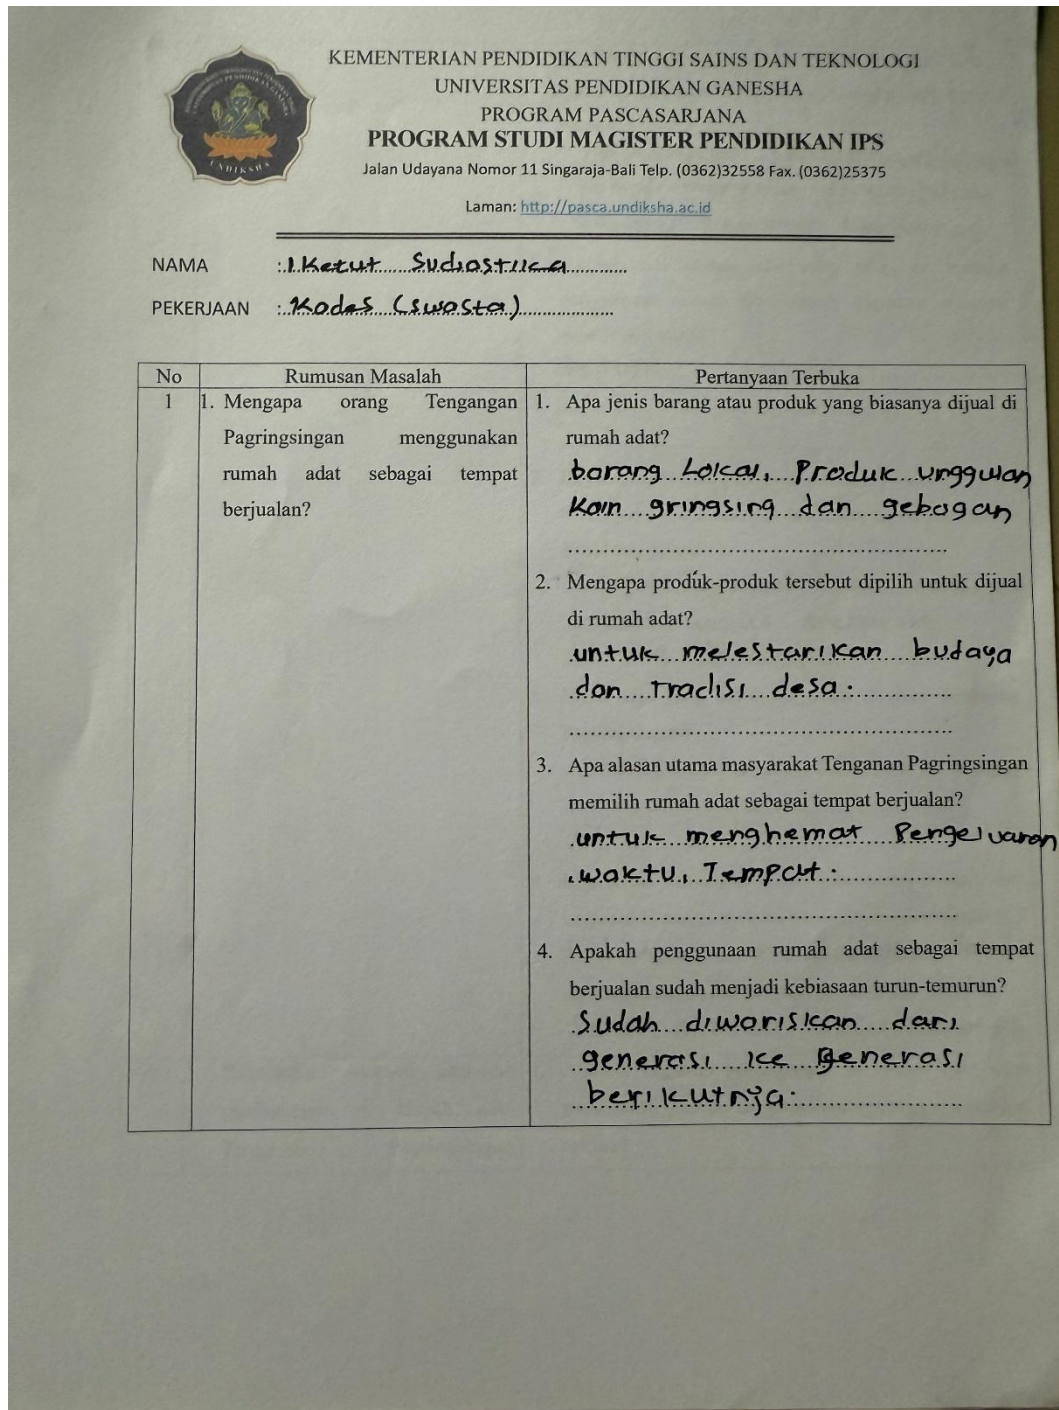 KEMENTERIAN PENDIDIKAN TINGGI SAINS DAN TEKNOLOGI
UNIVERSITAS PENDIDIKAN GANESHA
PROGRAM PASCASARJANA
PROGRAM STUDI MAGISTER PENDIDIKAN IPS
Jalan Udayana Nomor 11 Singaraja-Bali Telp. (0362)32558 Fax. (0362)25375
Laman: http://pasca.undiksha.ac.id
UNDIKSHA
NAMA : I Ketut Sudiastika
PEKERJAAN : Kades (swasta)
No Rumusan Masalah Pertanyaan Terbuka
1 1. Mengapa orang Tengangan
Pagringsingan menggunakan
rumah adat sebagai tempat
berjualan?
1. Apa jenis barang atau produk yang biasanya dijual di
rumah adat?
barang Lokal, Produk unggulan
Kain gringsing dan gebogan
2. Mengapa produk-produk tersebut dipilih untuk dijual
di rumah adat?
untuk melestarikan budaya
dan Tradisi desa.
3. Apa alasan utama masyarakat Tenganan Pagringsingan
memilih rumah adat sebagai tempat berjualan?
untuk menghemat Pengeluaran
, waktu, Tempat.
4. Apakah penggunaan rumah adat sebagai tempat
berjualan sudah menjadi kebiasaan turun-temurun?
Sudah diwariskan dari
generasi ke generasi
berikutnya.